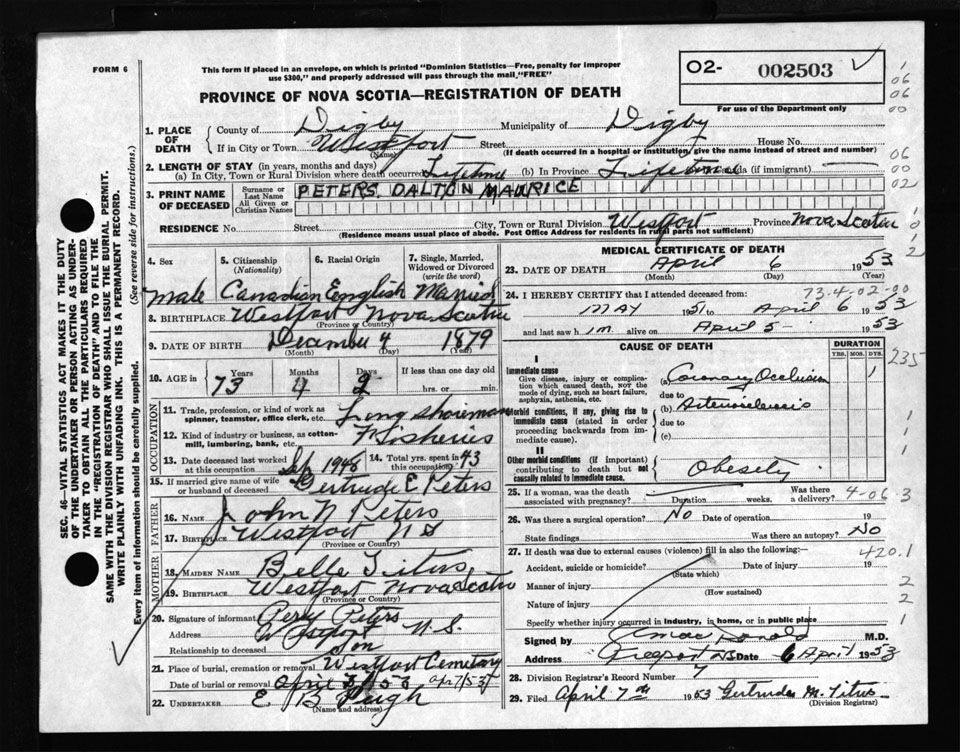 FORM 6
This form if placed in an envelope, on which is printed "Dominion Statistics—Free, penalty for improper
use $300," and properly addressed will pass through the mail "FREE"
PROVINCE OF NOVA SCOTIA—REGISTRATION OF DEATH
O2- 002503
For use of the Department only
1. PLACE OF DEATH
County of Digby Municipality of Digby
If in City or Town Westport Street House No.
(Name) (If death occurred in a hospital or institution, give the name instead of street and number)
2. LENGTH OF STAY (in years, months and days)
(a) In City, Town or Rural Division where death occurred Lifetime (b) In Province Lifetime (if immigrant)
3. PRINT NAME OF DECEASED
Surname or Last Name
All Given or Christian Names
PETERS DALTON MAURICE
RESIDENCE No. Street City, Town or Rural Division Westport Province Nova Scotia
(Residence means usual place of abode. Post Office Address for residents in rural parts not sufficient)
4. Sex
male
5. Citizenship (Nationality)
Canadian
6. Racial Origin
English
7. Single, Married, Widowed or Divorced (write the word)
Married
8. BIRTHPLACE Westport Nova Scotia
(Province or Country)
9. DATE OF BIRTH December 4 1879
(Month) (Day) (Year)
10. AGE in Years Months Days If less than one day old
73 4 2 hrs. or min.
OCCUPATION
11. Trade, profession, or kind of work as spinner, teamster, office clerk, etc. Longshoreman
12. Kind of industry or business, as cotton-mill, lumbering, bank, etc. Fisheries
13. Date deceased last worked at this occupation Sep 1948
14. Total yrs. spent in this occupation 43
15. If married give name of wife or husband of deceased Gertrude E Peters
FATHER
16. NAME John N Peters
17. BIRTHPLACE Westport N S
(Province or Country)
MOTHER
18. MAIDEN NAME Belle Titus
19. BIRTHPLACE Westport Nova Scotia
(Province or Country)
20. Signature of informant Percy Peters
Address Westport N.S.
Relationship to deceased Son
21. Place of burial, cremation or removal Westport Cemetery
Date of burial or removal April 53 Ap 7/53
22. UNDERTAKER E B Pugh
(Name and address)
MEDICAL CERTIFICATE OF DEATH
23. DATE OF DEATH April 6 1953
(Month) (Day) (Year)
73.4-02-00
24. I HEREBY CERTIFY that I attended deceased from:
MAY 1951 to April 6 1953
and last saw him alive on April 5 1953
CAUSE OF DEATH
DURATION
YRS. MOS. DYS.
235
I
Immediate cause
Give disease, injury or complication which caused death, not the mode of dying, such as heart failure, asphyxia, asthenia, etc.
(a) Coronary Occlusion 1
due to
Morbid conditions, if any, giving rise to immediate cause (stated in order proceeding backwards from immediate cause).
(b) Arteriosclerosis
due to
(c)
II
Other morbid conditions (if important) contributing to death but not causally related to immediate cause.
Obesity
25. If a woman, was the death associated with pregnancy? Duration weeks. Was there a delivery? 4-06-3
26. Was there a surgical operation? No Date of operation 19
State findings Was there an autopsy? No
27. If death was due to external causes (violence) fill in also the following:— 420.1
Accident, suicide or homicide? Date of injury 19
(State which)
Manner of injury
(How sustained)
Nature of injury
Specify whether injury occurred in industry, in home, or in public place
Signed by MacDonald M.D.
Address Freeport NS Date 6 April 1953
28. Division Registrar's Record Number 7
29. Filed April 7th 1953 Gertrude M. Titus
(Division Registrar)
SEC. 46—VITAL STATISTICS ACT MAKES IT THE DUTY
OF THE UNDERTAKER OR PERSON ACTING AS UNDERTAKER TO OBTAIN ALL THE PARTICULARS REQUIRED
IN THE "REGISTRATION OF DEATH" AND TO FILE THE
SAME WITH THE DIVISION REGISTRAR WHO SHALL ISSUE THE BURIAL PERMIT.
WRITE PLAINLY WITH UNFADING INK. THIS IS A PERMANENT RECORD.
Every item of information should be carefully supplied. (See reverse side for instructions.)